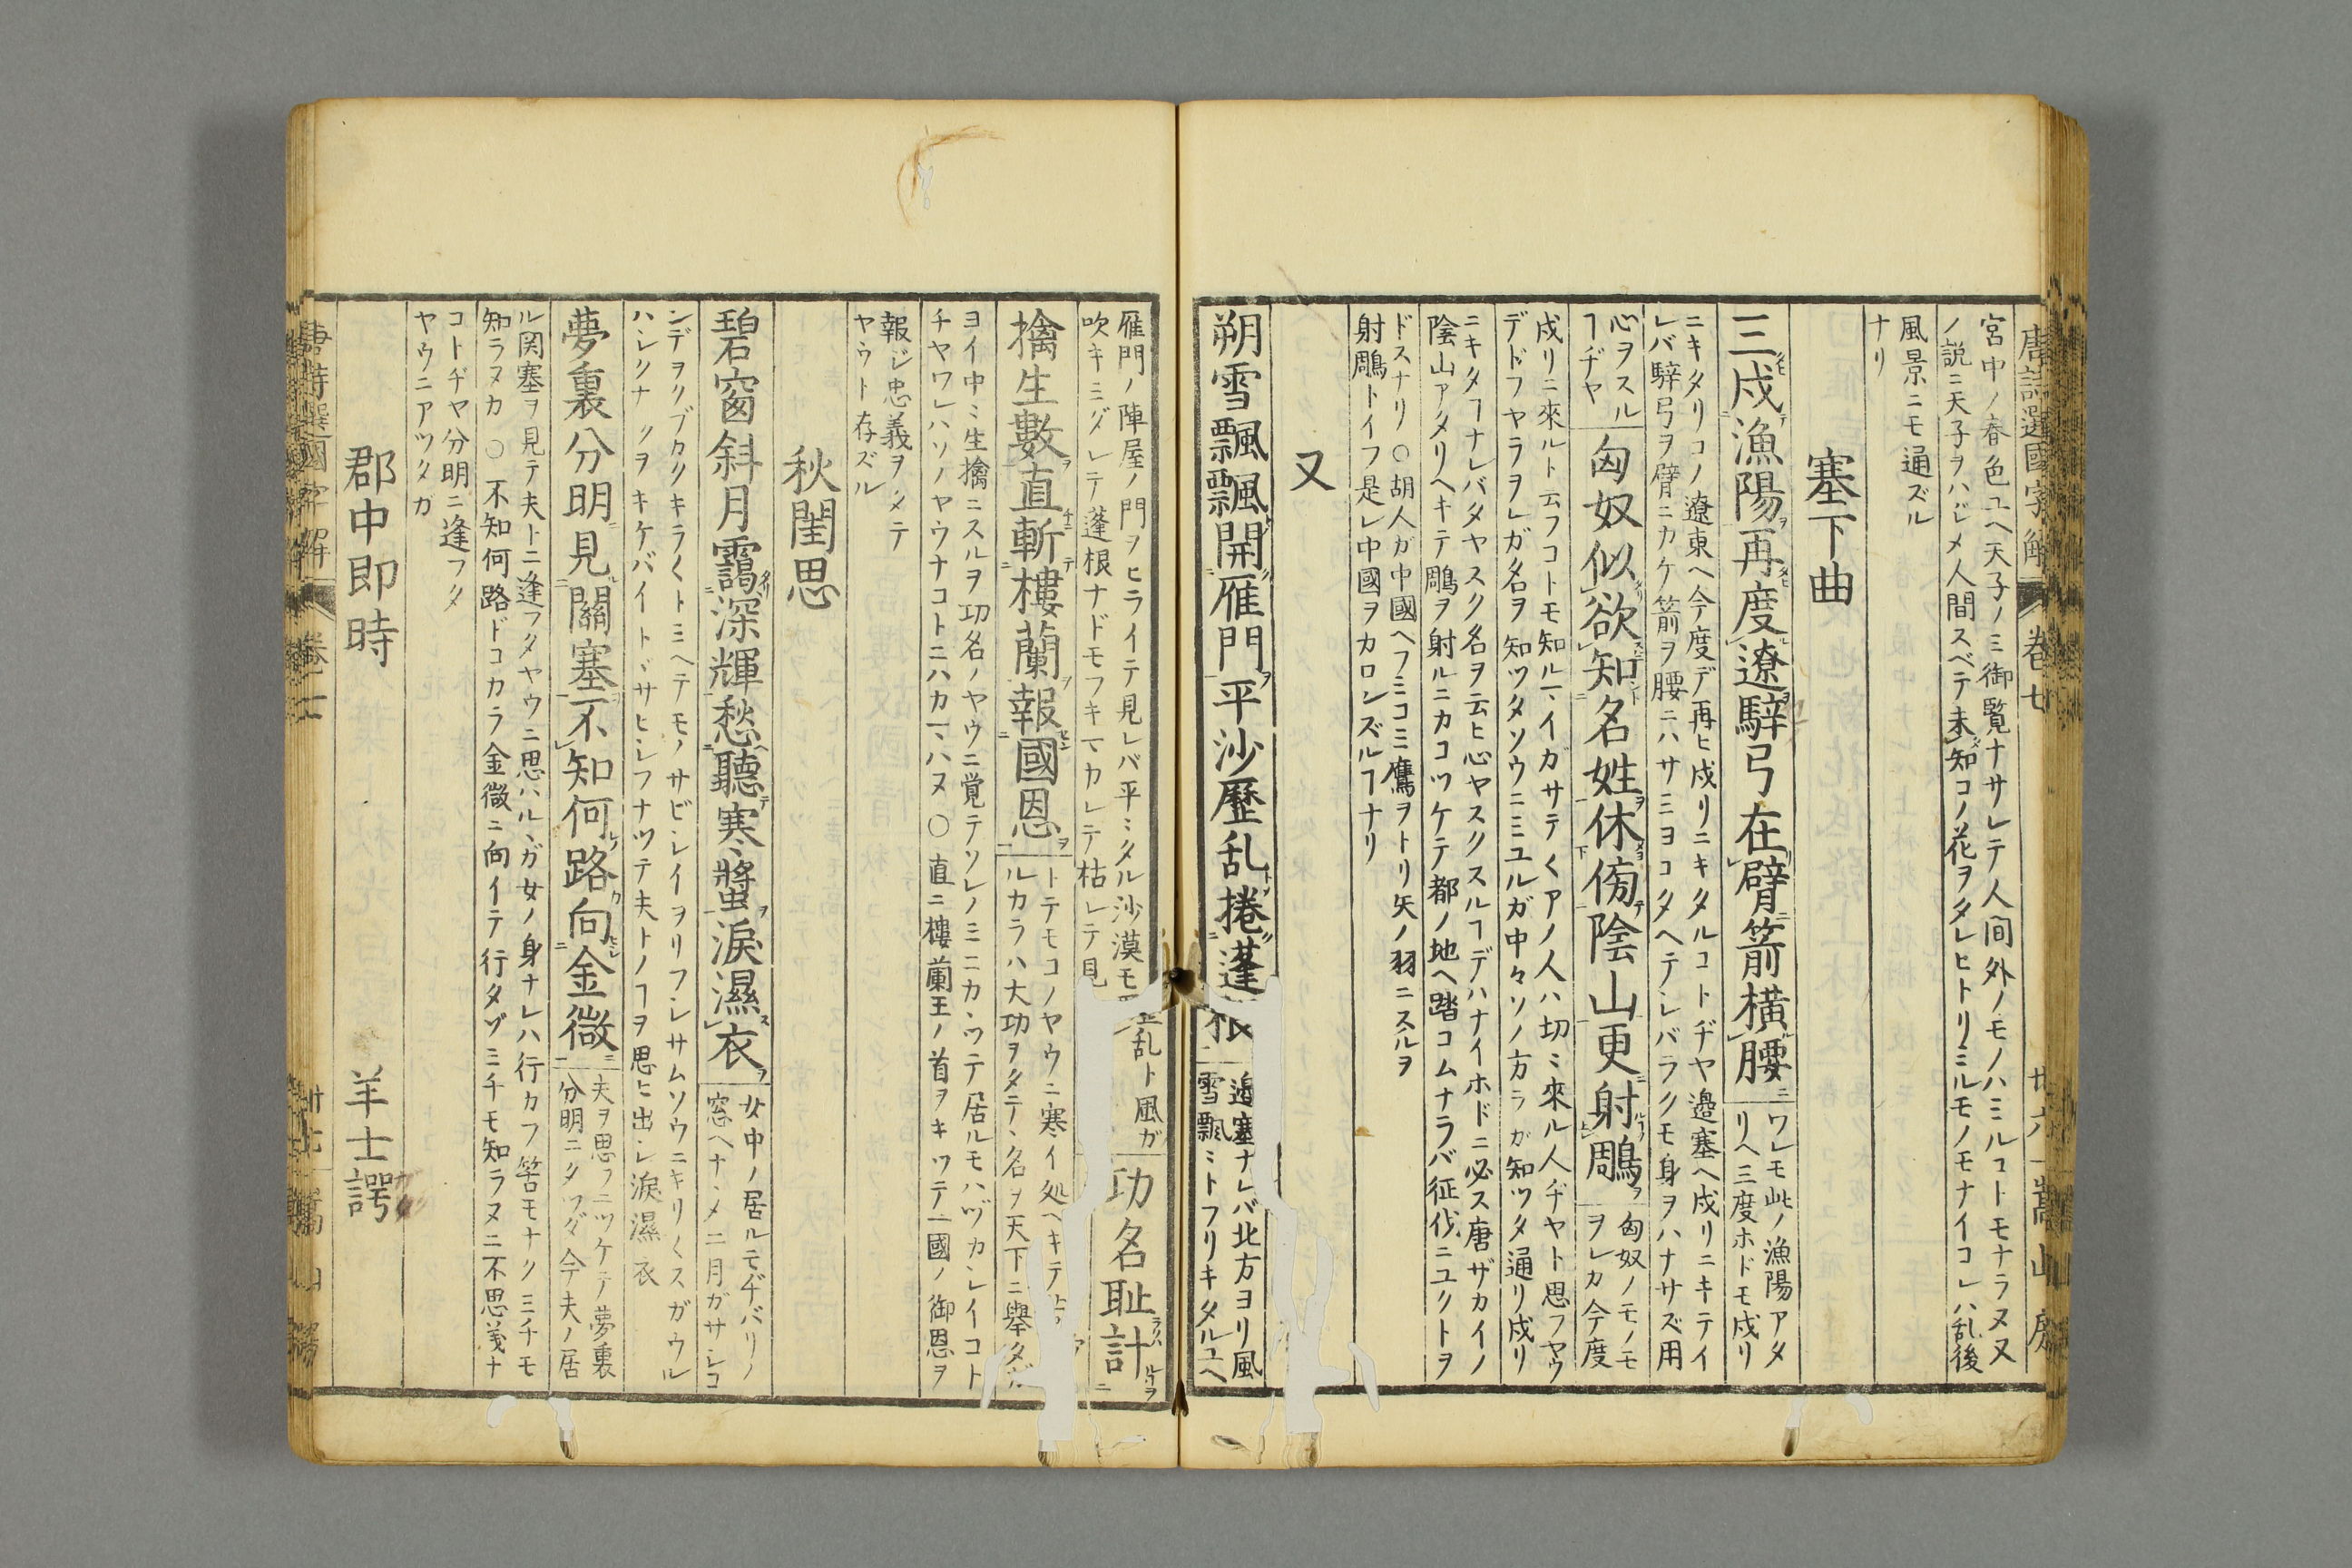 唐詩選國字解 卷七 廿六 嵩山房
宮中ノ春色ユヘ天子ノミ御覧ナサレテ人间外ノモノハミルコトモナラヌ又
ノ説ニ天子ヲハジメ人間スベテ未知コノ花ヲタレヒトリミルモノモナイコレハ乱後
風景ニモ通ズル
ナリ
塞下曲
三戍漁陽再度遼騂弓在臂箭横腰
ワレモ此ノ漁陽アタ
リヘ三度ホドモ戍リ
ニキタリコノ遼東ヘ今度デ再ヒ戍リニキタルコトヂヤ邉塞ヘ戍リニキテイ
レバ騂弓ヲ臂ニカケ箭ヲ腰ニハサミヨコタヘテシバラクモ身ヲハナサズ用
心ヲスル
ヿヂヤ
匈奴似欲知名姓休傍陰山更射鵰
匈奴ノモノモ
ヲレカ今度
戍リニ來ルト云フコトモ知ルヽイガサテ〱アノ人ハ切〻來ル人ヂヤト思フヤウ
デドフヤラヲレガ名ヲ知ツタソウニミユルガ中々ソノ方ラガ知ツタ通リ戍リ
ニキタヿナレバタヤスク名ヲ云ヒ心ヤスクスルヿデハナイホドニ必ス唐ザカイノ
陰山アタリヘキテ鵰ヲ射ルニカコツケテ都ノ地ヘ踏コムナラバ征伐ニユクトヲ
ドスナリ ○胡人ガ中國ヘフミコミ鷹ヲトリ矢ノ羽ニスルヲ
射鵰トイフ是レ中國ヲカロンズルヿナリ
又
朔雪飄飄開雁門平沙歷乱捲蓬根
邉塞ナレバ北方ヨリ風
雪飄〻トフリキタルユヘ
雁門ノ陣屋ノ門ヲヒライテ見レバ平〻タル沙漠モ乱ト風ガ
吹キミダレテ蓬根ナドモフキヽカレテ枯レテ見
功名耻計
擒生數直斬樓蘭報國恩
トテモコノヤウニ寒イ処ヘキテ
ルカラハ大功ヲタテ、名ヲ天下ニ舉タ
ヨイ中〻生擒ニスルヲ功名ノヤウニ覚テソレノミニカヽツテ居ルモハヅカシイコト
チヤワレハソノヤウナコトニハカヽハヌ ○直ニ樓蘭王ノ首ヲキツテ一國ノ御恩ヲ
報ジ忠義ヲシテ
ヤウト存ズル
秋閨思
碧窗斜月靄深輝愁聽寒螿淚濕衣
女中ノ居ルモヂバリノ
窓ヘナヽメニ月ガサシコ
ンデヲクブカクキラ〱トミヘテモノサビシイヲリフシサムソウニキリ〱スガウル
ハシクナクヲキケバイトヾサヒシフナツテ夫トノヿヲ思ヒ出シ淚濕衣
夢裏分明見關塞不知何路向金微
夫ヲ思フニツケテ夢裏
分明ニタフダ今夫ノ居
ル関塞ヲ見テ夫トニ逢フタヤウニ思ハルヽガ女ノ身ナレハ行カフ筈モナク三千モ
知ラヌカ ○不知何路ドコカラ金微ニ向イテ行タゾミチモ知ラヌニ不思義ナ
コトヂヤ分明ニ逢フタ
ヤウニアツタガ
郡中即時 羊士諤